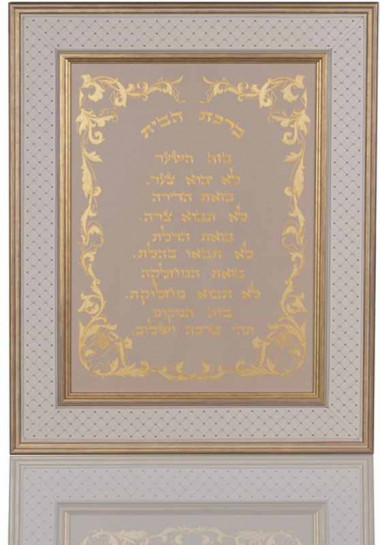 ברכת הבית
בזה השער
לא יבוא צער.
בזאת הדירה
לא תבוא צרה.
בזאת הדלת
לא תבוא בהלה.
בזאת המחלקה
לא תבוא מחלוקת.
בזה המקום
תהי ברכה ושלום.